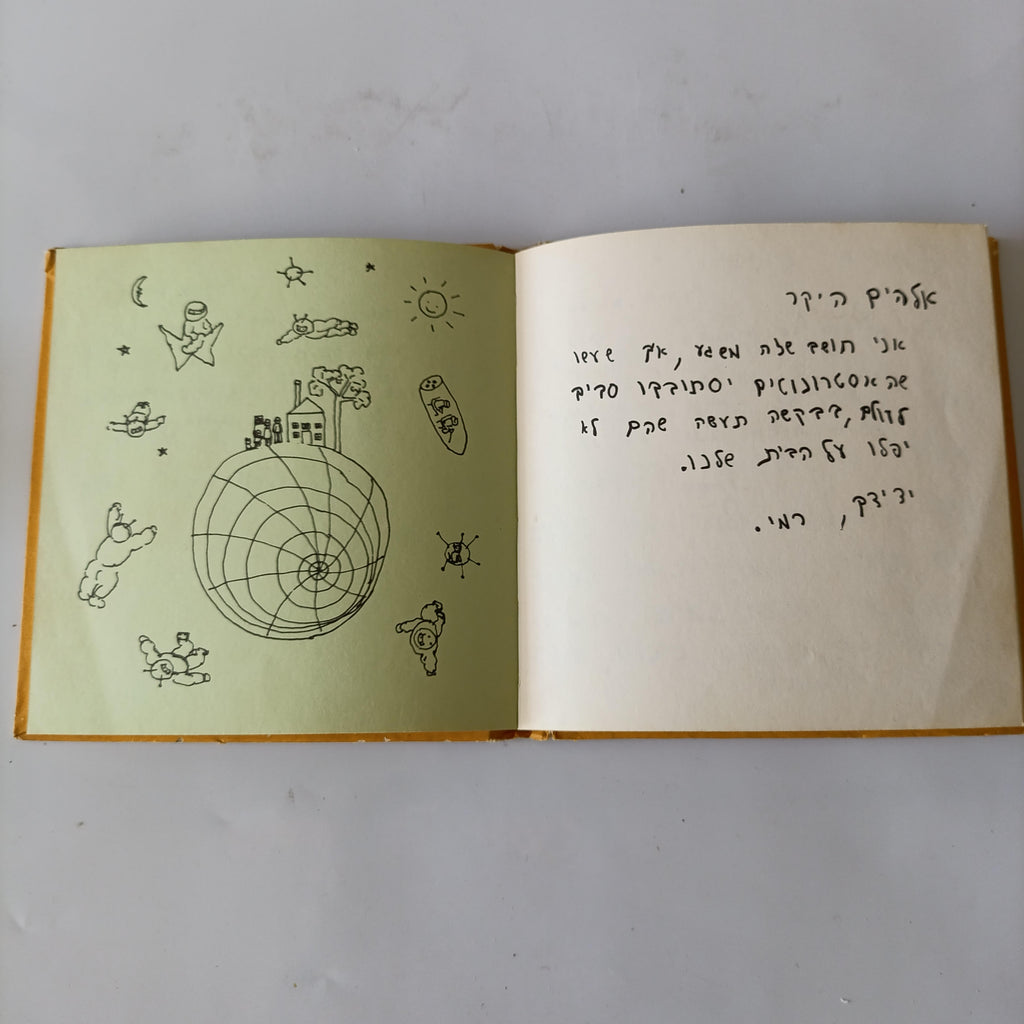 אלהים היקר
אני חושב שזה משגע, איך שעשו
שהאסטרונוטים יסתובבו סביב
לעולם, בבקשה תעשה שהם לא
יפלו על הבית שלנו.
ידידך, רמי.